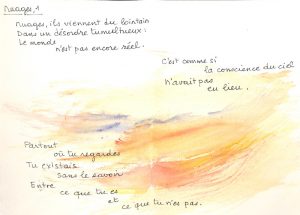 Nuages, 1
Nuages, ils viennent du lointain
Dans un désordre tumultueux.
Le monde
n'est pas encore réel.
C'est comme si
la conscience du ciel
n'avait pas
eu lieu.
Partout
où tu regardes
Tu existais
sans le savoir
Entre
ce que tu es
et
ce que tu n'es pas.